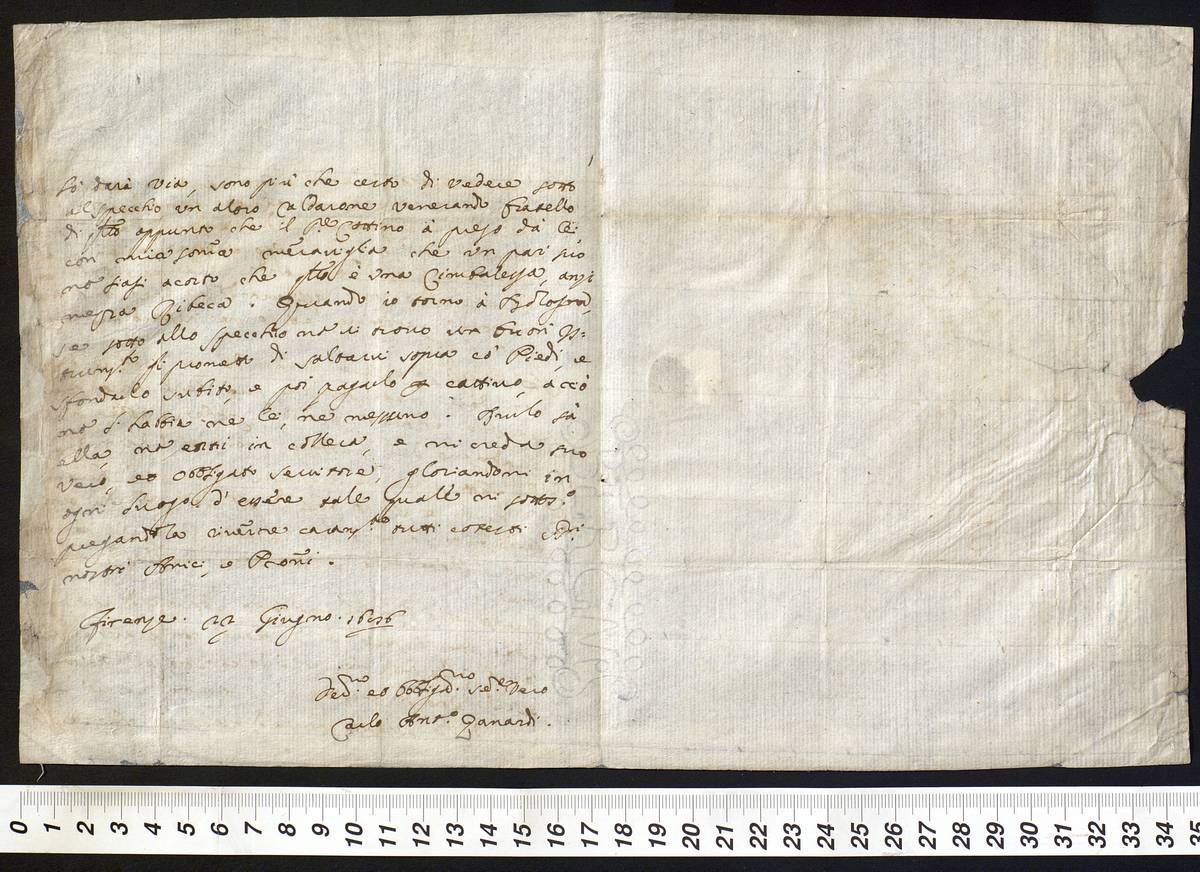 si darà via, sono più che certo di vedere sotto
al specchio un altro Caldarone venerando fratello
di q.sto appunto che il Sig.r Cottino à preso dà lei
con mia som̃a meraviglia che un pari suo
nõ siasi acorto che q.sta è una Cimbalessa, anzi
negra Ribeca. Quando io torno à Bologna,
se sotto allo specchio nõ vi trovo un buon
di saltarvi sopra cõ Piedi, e
sfondarlo subito, e poi pagarlo cattivo, acciò
nõ l'habbia ne lei, ne nessuno. Tanto sà
ella, nõ entri in collera, e mi creda suo
vero, ed obbligato servitore, gloriandomi in
ogni luogo d'essere tale quale mi sotto.º
pregandola riverire tutti cotesti
nostri Amici, e Proñi.
Firenze. 22 Giugno. 1696
Dev.mo ed Obblig.mo Ser.re Vero
Carlo Ant.º Zanardi.
0 1 2 3 4 5 6 7 8 9 10 11 12 13 14 15 16 17 18 19 20 21 22 23 24 25 26 27 28 29 30 31 32 33 34 35